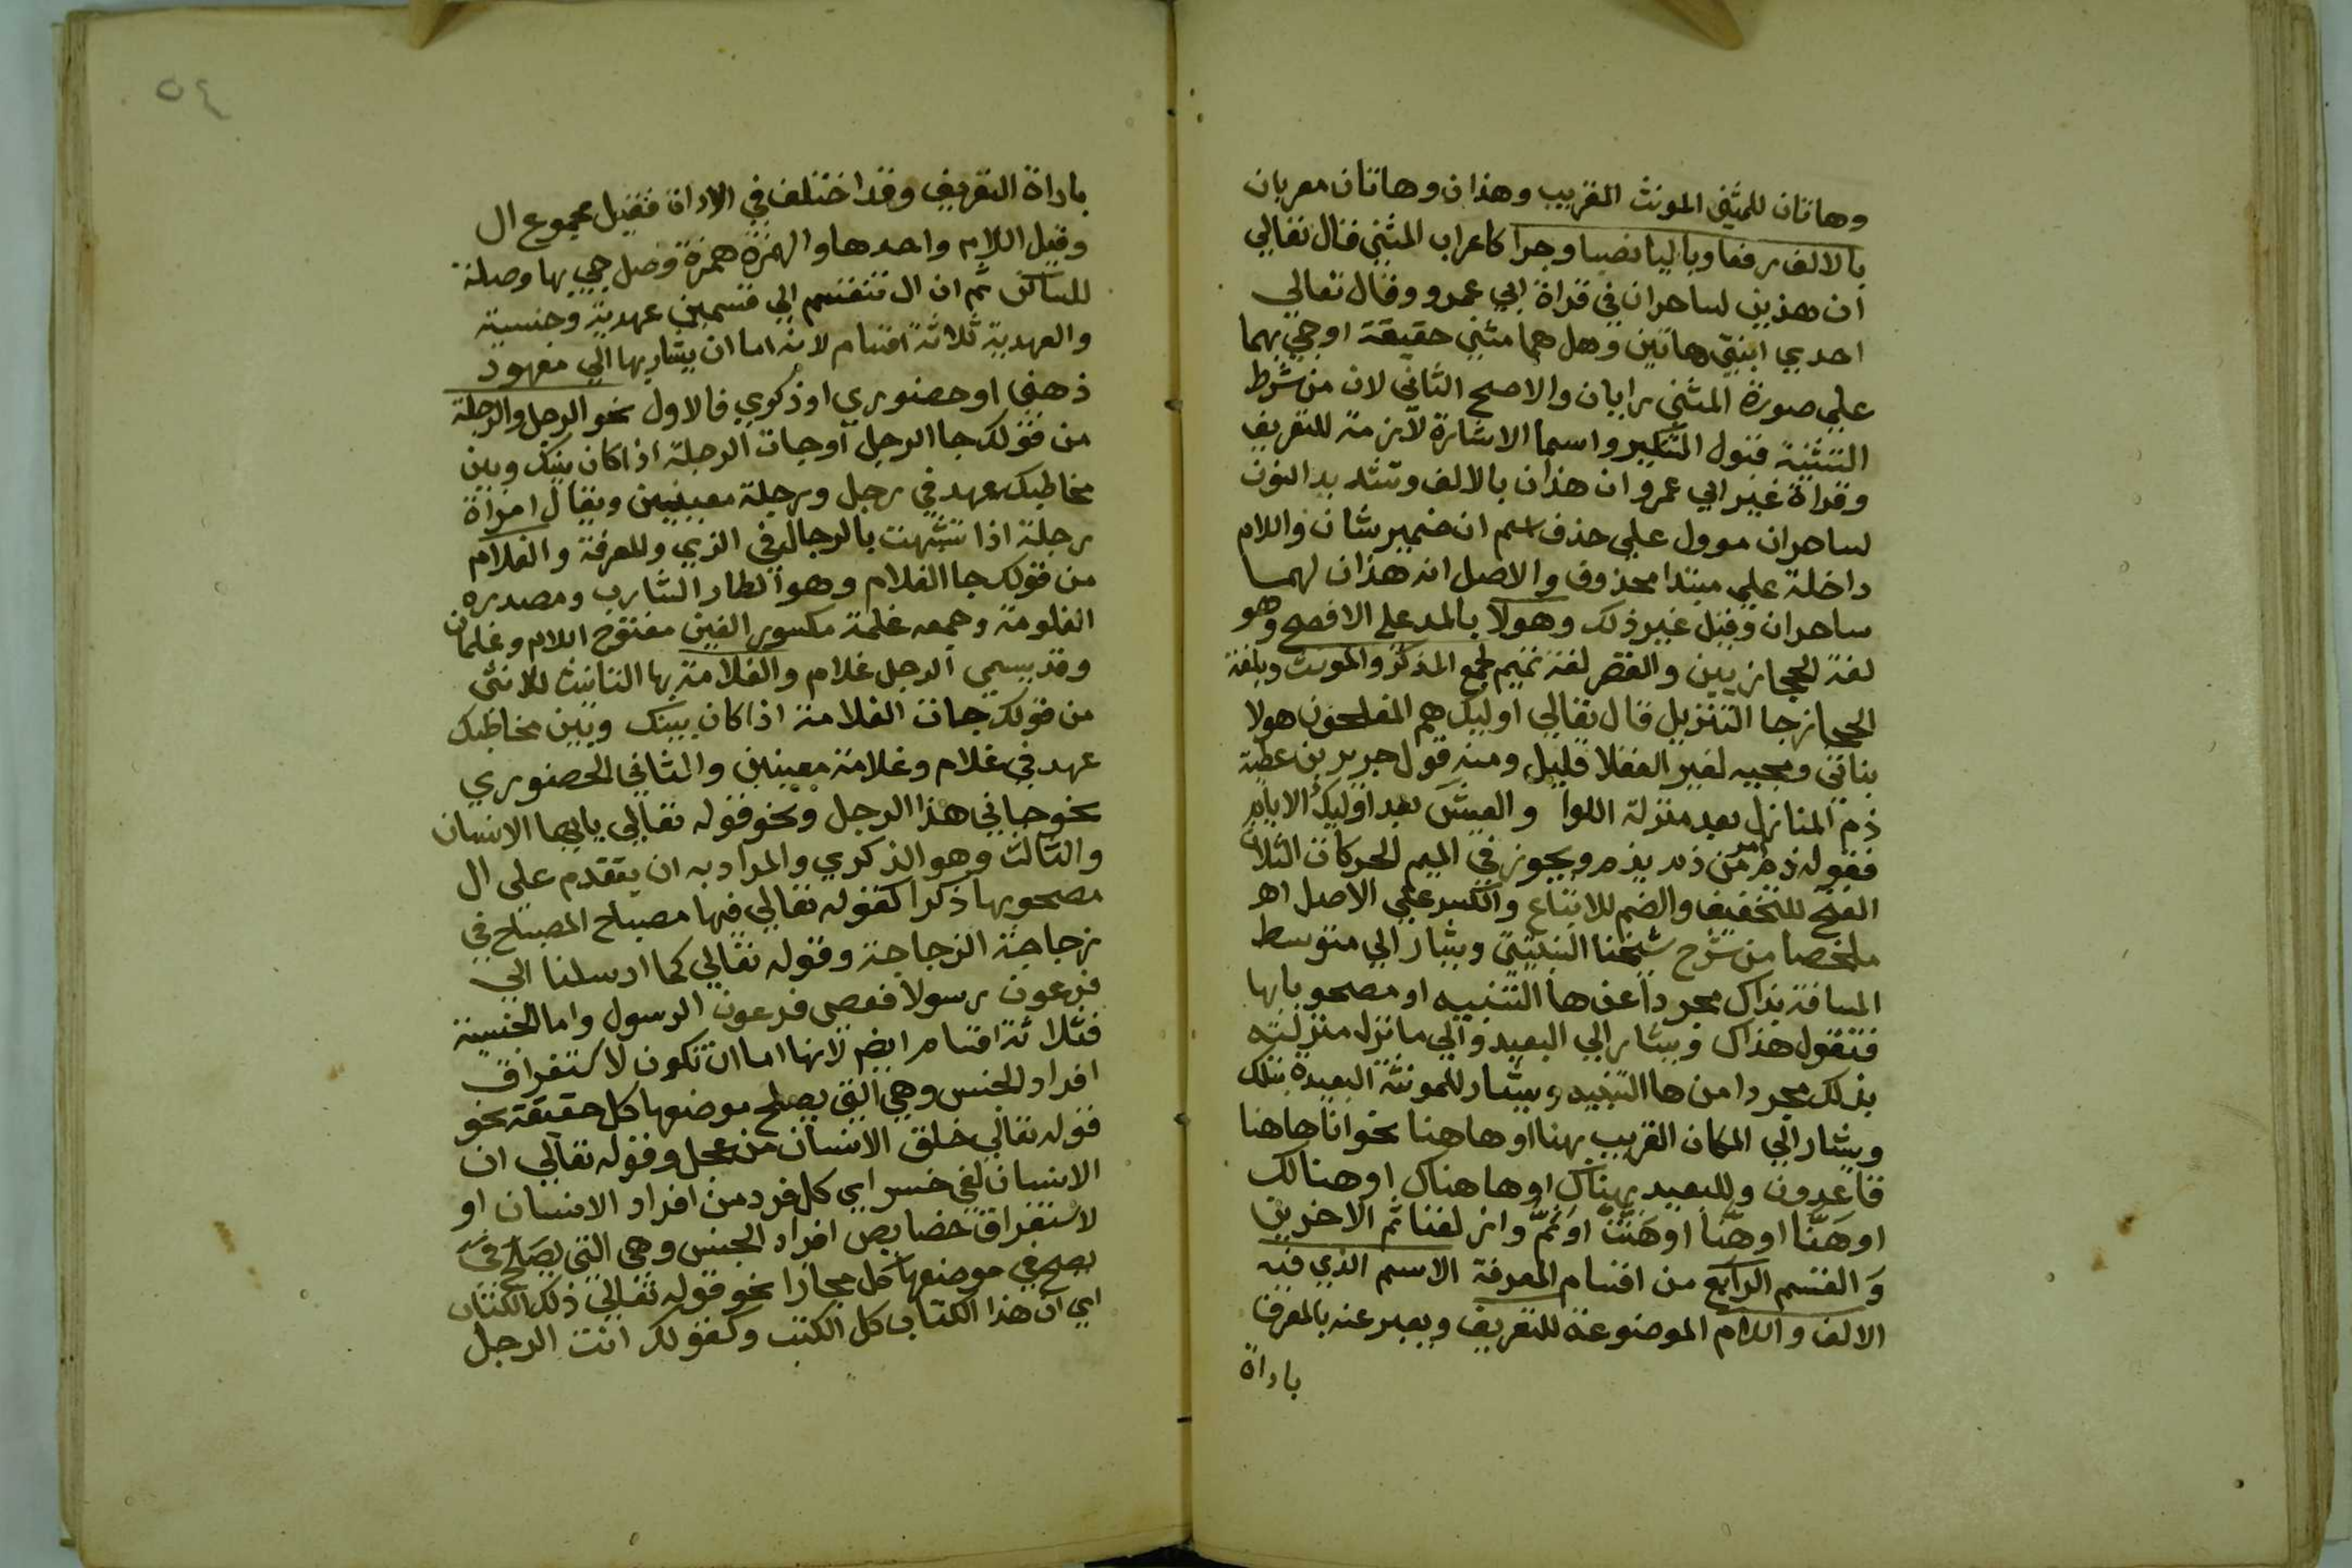 وهاتان للمثني المونث القريب وهذان وهاتان معربان
بالالف رفعا وباليا نصبا وجرا كاعراب المثني قال تعالي
ان هذين لساحران في قراة ابي عمرو وقال تعالي
احدي ابنتي هاتين وهل هما مثني حقيقة او جي بهما
علي صورة المثني رايان والاصح الثاني لان من شرط
التثنية قبول التنكير واسما الاشارة لازمة للتعريف
وقراة غير ابي عمرو ان هذان بالالف وتشديد النون
لساحران موول علي حذف اسم ان ضمير شان واللام
داخلة علي مبتدا محذوف والاصل انه هذان لهما
ساحران وقيل غير ذلك وهولا بالمد علي الافصح وهو
لغة الحجازيين والقصر لغة تميم لجمع المذكر والمونث وبلغة
الحجاز جا التنزيل قال تعالي اوليك هم المفلحون هولا
بناتي ومجيه لغير العقلا قليل ومنه قول جرير بن عطية
ذم المنازل بعد منزلة اللوا والعيش بعد اوليك الايام
فقوله ذم امر من ذم يذم ويجوز في الميم الحركات الثلاث
الفتح للتخفيف والضم للاتباع والكسر علي الاصل اهـ
ملخصا من شرح شيخنا النبتيتي ويشار الي متوسط
المسافة بذاك مجردا عن ها التنبيه او مصحوبا بها
فتقول هذاك ويشار الي البعيد والي ما نزل منزلته
بذلك مجردا من ها التنبيه ويشار للمونثة البعيدة بتلك
ويشار الي المكان القريب بهنا او هاهنا نحو انا هاهنا
قاعدون وللبعيد بهناك او هاهناك او هنالك
او هَنَّا او هِنَّا او هَنَّتْ او ثَمَّ وازلفنا ثم الاخرين
وَالقسم الرابع من اقسام المعرفة الاسم الذي فيه
الالف واللام الموضوعة للتعريف ويعبر عنه بالمعرف
باداة
٥٤
باداة التعريف وقد اختلف في الاداة فقيل مجموع ال
وقيل اللام واحدها والهمزة همزة وصل جي بها وصلة
للساكن ثم ان ال تنقسم الي قسمين عهدية وجنسية
والعهدية ثلاثة اقسام لانه اما ان يشار بها الي معهود
ذهني او حضوري او ذكري فالاول نحو الرجل والرجلة
من قولك جا الرجل او جات الرجلة اذا كان بينك وبين
مخاطبك عهد في رجل ورجلة معينين ويقال امراة
رجلة اذا تشبهت بالرجال في الزي وللمعرفة والغلام
من قولك جا الغلام وهو الطار الشارب ومصدره
الغلومة وجمعه غلمة مكسور الغين مفتوح اللام وغلمان
وقد يسمي الرجل غلام والغلامة بها التانيث للانثي
من قولك جات الغلامة اذا كان بينك وبين مخاطبك
عهد في غلام وغلامة معينين والثاني الحضوري
نحو جاني هذا الرجل ونحو قوله تعالي ياايها الانسان
والثالث وهو الذكري والمراد به ان يتقدم علي ال
مصحوبها ذكرا كقوله تعالي فيها مصباح المصباح في
زجاجة الزجاجة وقوله تعالي كما ارسلنا الي
فرعون رسولا فعصي فرعون الرسول واما الجنسية
فثلاثة اقسام ايضم لانها اما ان تكون لاستغراق
افراد الجنس وهي التي يصلح موضعها كل حقيقة نحو
قوله تعالي خلق الانسان من عجل وقوله تعالي ان
الانسان لفي خسر اي كل فرد من افراد الانسان او
لاستغراق خصايص افراد الجنس وهي التي يصلح في
يصلح في موضعها كل مجازا نحو قوله تعالي ذلك الكتاب
اي ان هذا الكتاب كل الكتب وكقولك انت الرجل